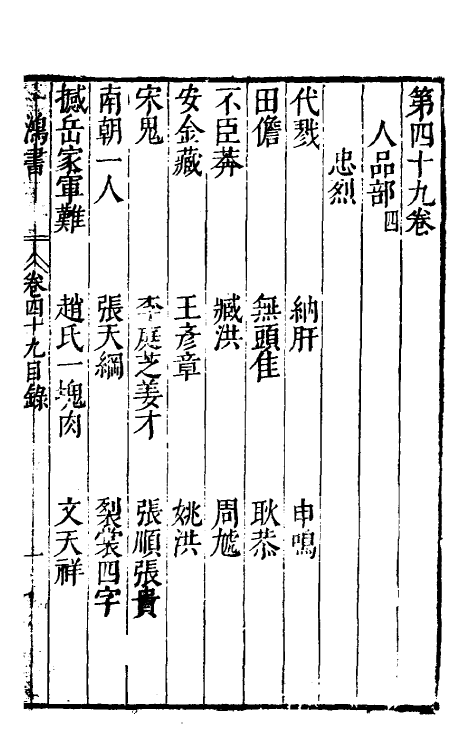 第四十九卷
人品部四
忠烈
代戮　納肝　申鳴
田儋　無頭隹　耿恭
不臣莽　臧洪　周虓
安金藏　王彥章　姚洪
宋鬼　李庭芝姜才　張順張貴
南朝一人　張天綱　裂裳四字
撼岳家軍難　趙氏一塊肉　文天祥
鴻書　卷四十九目錄　一